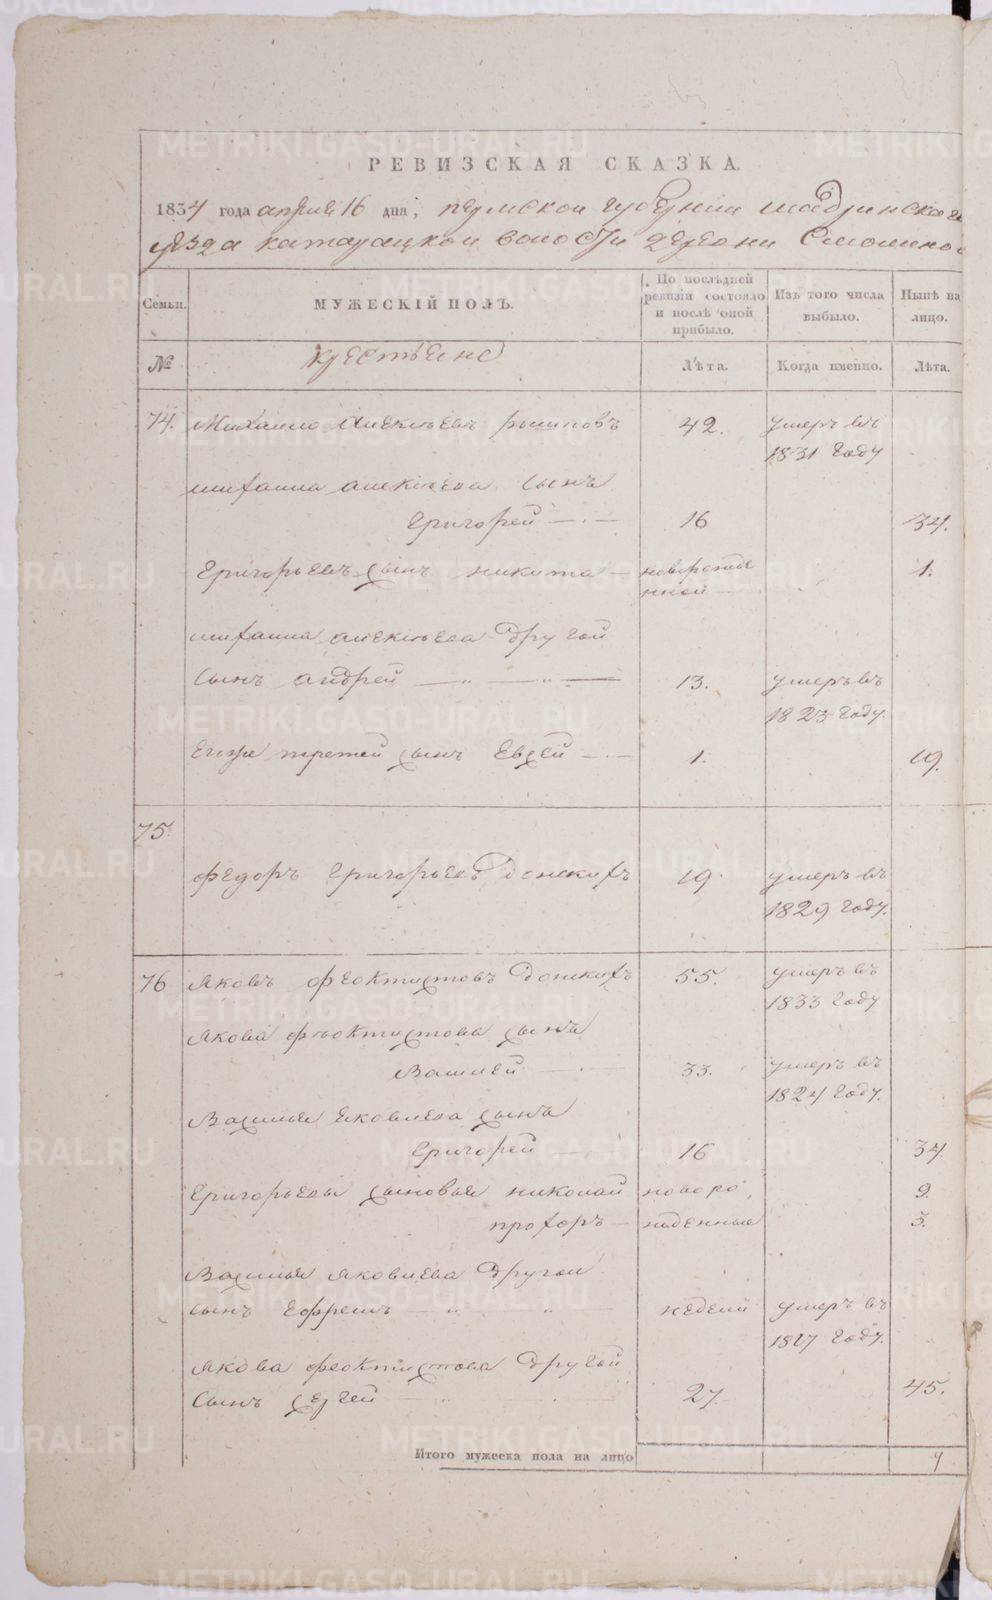 РЕВИЗСКАЯ СКАЗКА.
1834 года апреля 16 дня, пермской губернии шадринскаго
уезда катарацкой волости деревни Смолиной
Семьи. МУЖЕСКІЙ ПОЛЪ. По послѣдней ревизіи состояло и послѣ оной прибыло. Изъ того числа выбыло. Нынѣ на лицо.
№ крестьяне Лѣта. Когда именно. Лѣта.
74. Михаило Алексѣевъ 42. умеръ въ
1831 году
михаила алексѣева сынъ
Григорей 16 34.
Григорьевъ сынъ никита новорожде 1.
нной
михаила алексѣева другой
сынъ андрей 13. умеръ въ
1823 году.
Егоже третей сынъ Евсей 1. 19.
75.
федоръ григорьевъ донскихъ 19. умеръ въ
1829 году.
76 яковъ феоктистовъ донскихъ 55. умеръ въ
1833 году
якова феоктистова сынъ
Василей 33. умеръ въ
1824 году.
Василья яковлева сынъ
Григорей 16 34
Григорьевы сыновья николай новоро 9.
прохоръ жденные 3.
Василья яковлева другой
сынъ Ефремъ недели умеръ въ
1817 году.
якова феоктистова другой
сынъ сергей 27. 45.
Итого мужеска пола на лицо 7
METRIKI.GASO-URAL.RU